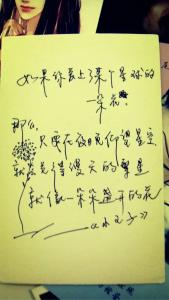 如果你爱上了某个星球的
一朵花。
那么，
只要在夜晚仰望星空
就会觉得漫天的繁星
就像一朵朵盛开的花
——《小王子》